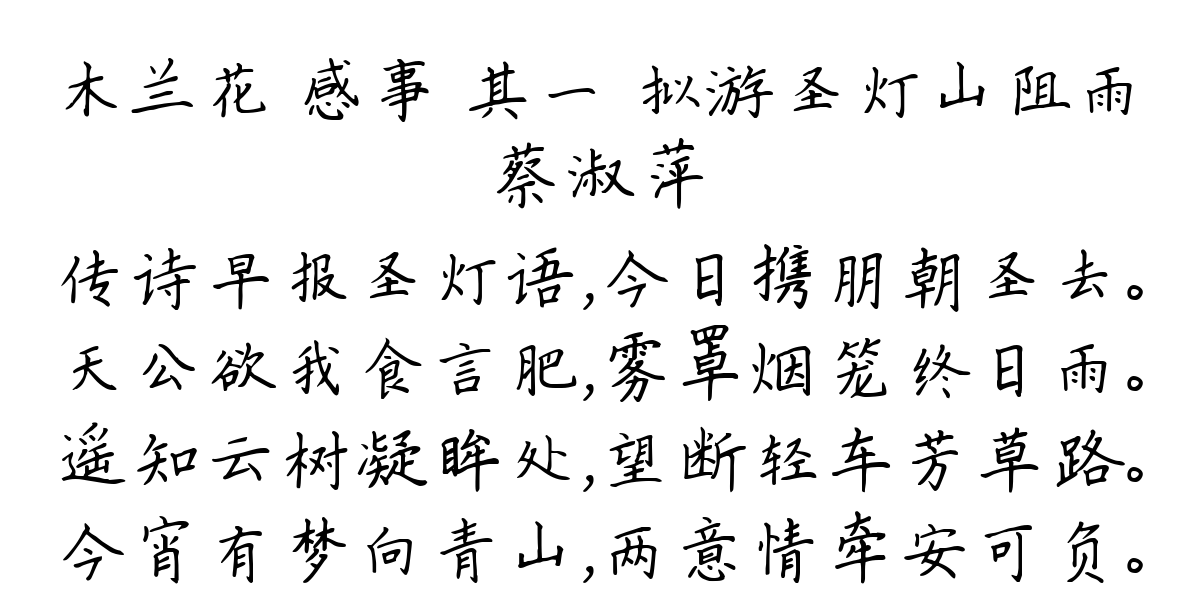 木兰花 感事 其一 拟游圣灯山阻雨
蔡淑萍
传诗早报圣灯语,今日携朋朝圣去。
天公欲我食言肥,雾罩烟笼终日雨。
遥知云树凝眸处,望断轻车芳草路。
今宵有梦向青山,两意情牵安可负。